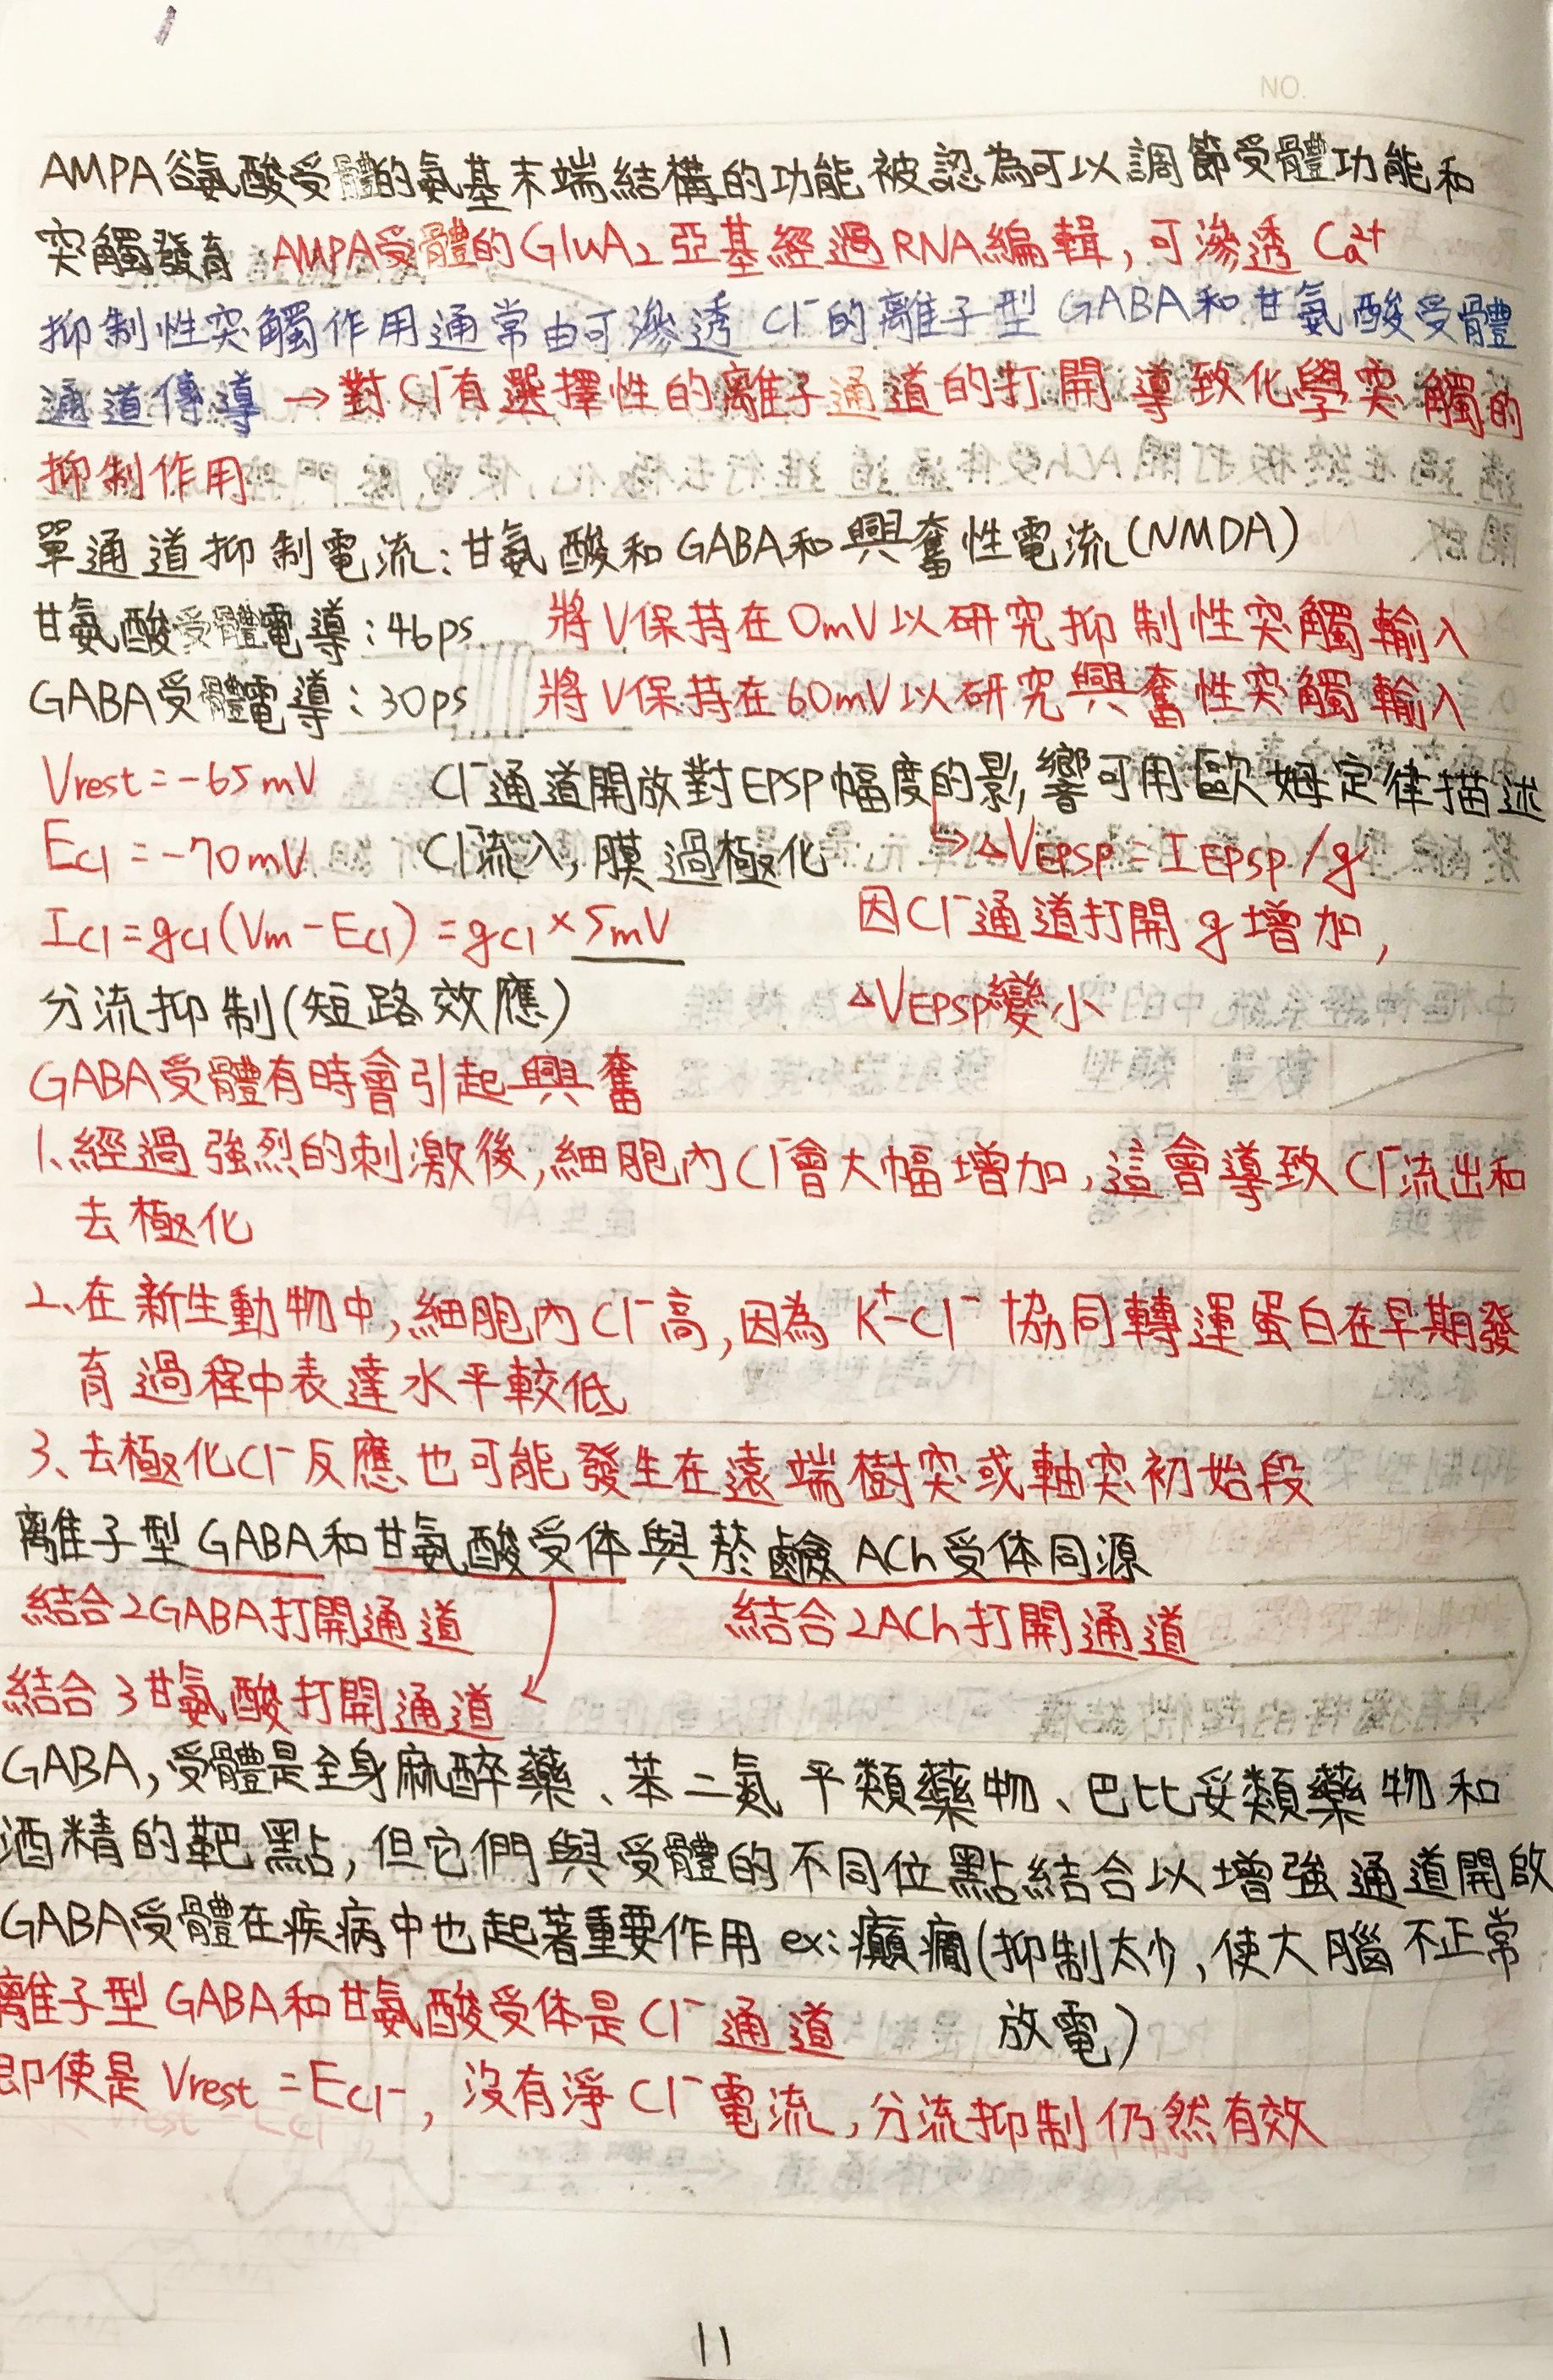 NO.
AMPA谷氨酸受體的氨基末端結構的功能被認為可以調節受體功能和
突觸發育 AMPA受體的GluA2亞基經過RNA編輯,可滲透Ca²⁺
抑制性突觸作用通常由可滲透Cl⁻的離子型GABA和甘氨酸受體
通道傳導→對Cl⁻有選擇性的離子通道的打開導致化學突觸的
抑制作用
單通道抑制電流:甘氨酸和GABA和興奮性電流(NMDA)
甘氨酸受體電導:46ps 將V保持在0mV以研究抑制性突觸輸入
GABA受體電導:30ps 將V保持在60mV以研究興奮性突觸輸入
Vrest=-65mV Cl⁻通道開放對EPSP幅度的影響可用歐姆定律描述
ECl=-70mV Cl⁻流入,膜過極化 ↳△VEPSP=IEPSP/g
ICl=gCl(Vm-ECl)=gCl×5mV 因Cl⁻通道打開g增加,
分流抑制(短路效應) △VEPSP變小
GABA受體有時會引起興奮
1、經過強烈的刺激後,細胞內Cl⁻會大幅增加,這會導致Cl⁻流出和
去極化
2、在新生動物中,細胞內Cl⁻高,因為K⁺-Cl⁻協同轉運蛋白在早期發
育過程中表達水平較低
3、去極化Cl⁻反應也可能發生在遠端樹突或軸突初始段
離子型GABA和甘氨酸受体與菸鹼ACh受体同源
結合2GABA打開通道 結合2ACh打開通道
結合3甘氨酸打開通道
GABA,受體是全身麻醉藥、苯二氮平類藥物、巴比妥類藥物和
酒精的靶點,但它們與受體的不同位點結合以增強通道開啟
GABA受體在疾病中也起著重要作用 ex:癲癇(抑制太少,使大腦不正常
放電)
離子型GABA和甘氨酸受体是Cl⁻通道
即使是Vrest=ECl⁻,沒有淨Cl⁻電流,分流抑制仍然有效
11